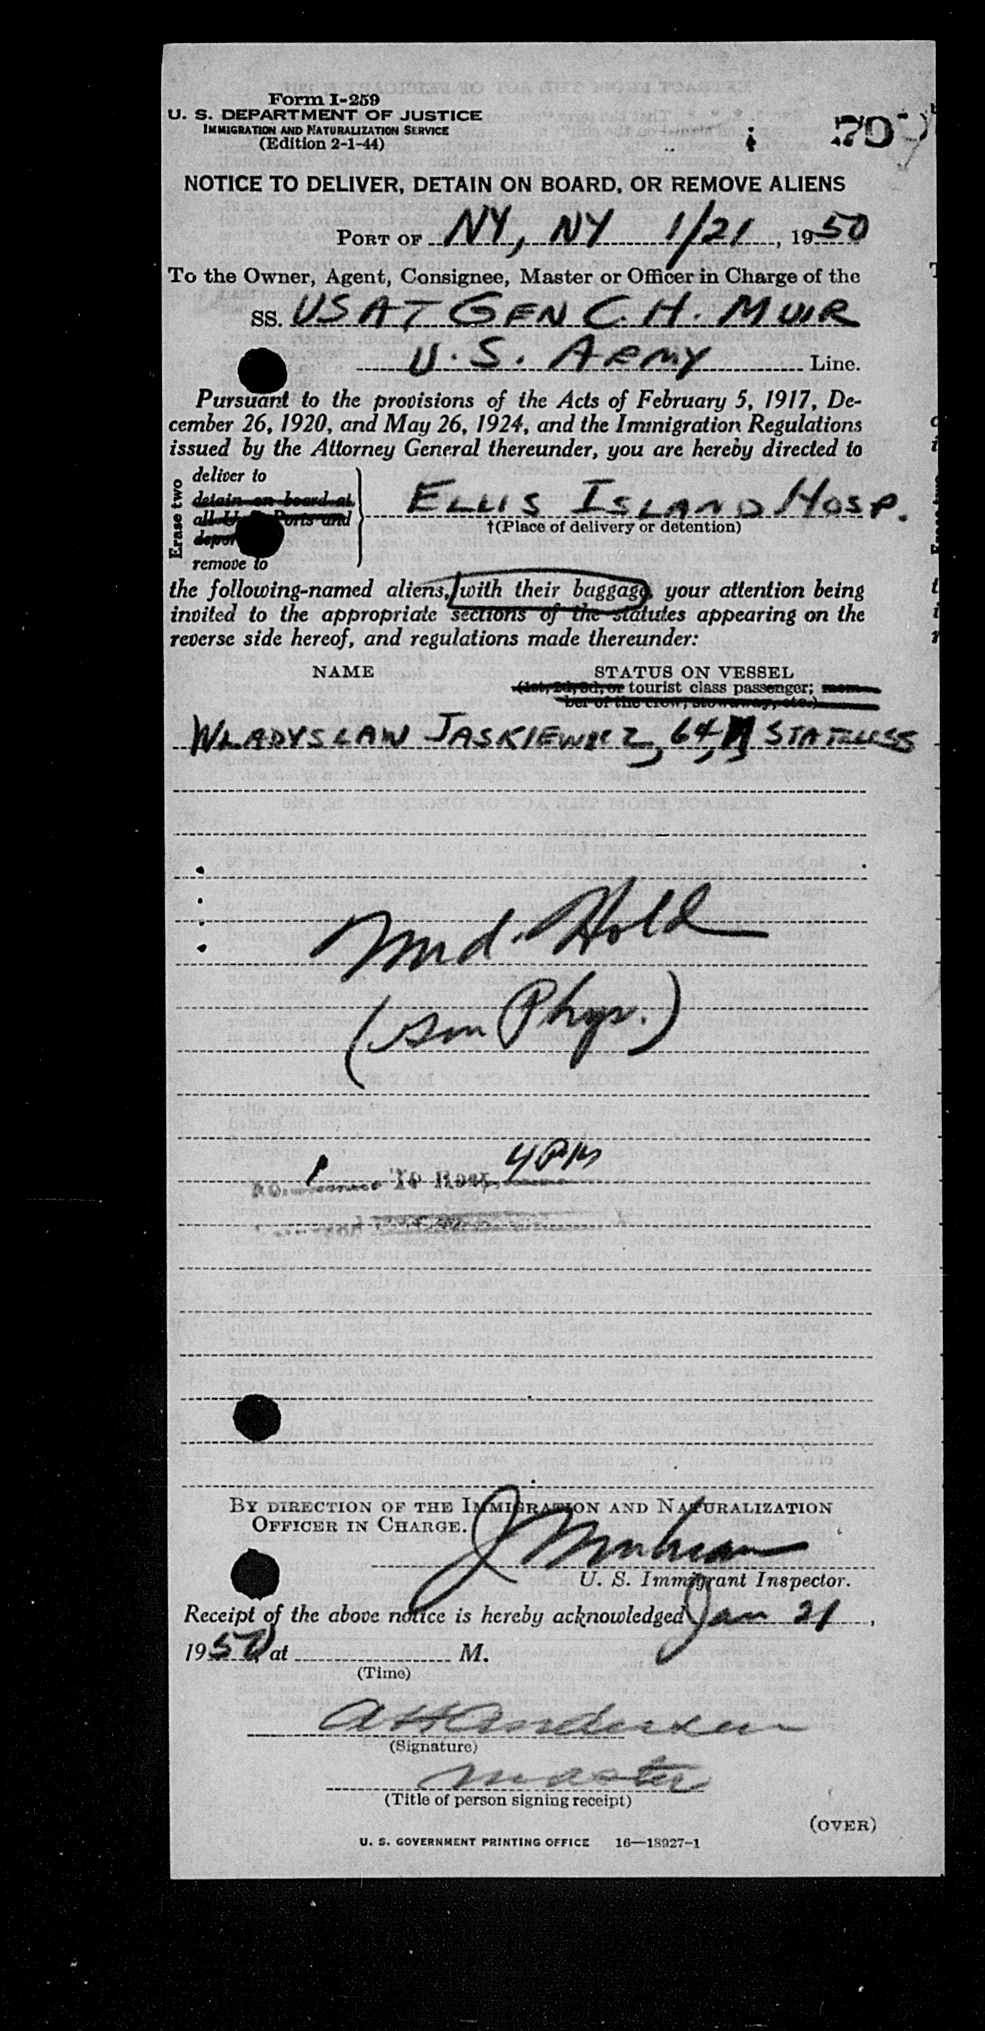 Form I-259
U. S. DEPARTMENT OF JUSTICE
IMMIGRATION AND NATURALIZATION SERVICE
(Edition 2-1-44)
NOTICE TO DELIVER, DETAIN ON BOARD, OR REMOVE ALIENS
PORT OF NY, NY 1/21, 1950
To the Owner, Agent, Consignee, Master or Officer in Charge of the
SS. USAT GEN C. H. MUIR
U. S. ARMY Line.
Pursuant to the provisions of the Acts of February 5, 1917, De-
cember 26, 1920, and May 26, 1924, and the Immigration Regulations
issued by the Attorney General thereunder, you are hereby directed to
Erase two
deliver to
detain on board at
all U. S. Ports and
remove to
ELLIS ISLAND HOSP.
†(Place of delivery or detention)
the following-named aliens, with their baggage, your attention being
invited to the appropriate sections of the statutes appearing on the
reverse side hereof, and regulations made thereunder:
NAME STATUS ON VESSEL
(1st, 2d, 3d, or tourist class passenger; mem-
ber of the crew, stowaway, etc.)
WLADYSLAW JASKIEWICZ, 64, M, STATELESS
Med. Hold
Phys.)
1 4 PM
BY DIRECTION OF THE IMMIGRATION AND NATURALIZATION
OFFICER IN CHARGE.
U. S. Immigrant Inspector.
Receipt of the above notice is hereby acknowledged Jan 21,
1950, at M.
(Time)
A H Andersen
(Signature)
master
(Title of person signing receipt)
(OVER)
U. S. GOVERNMENT PRINTING OFFICE 16—18927-1